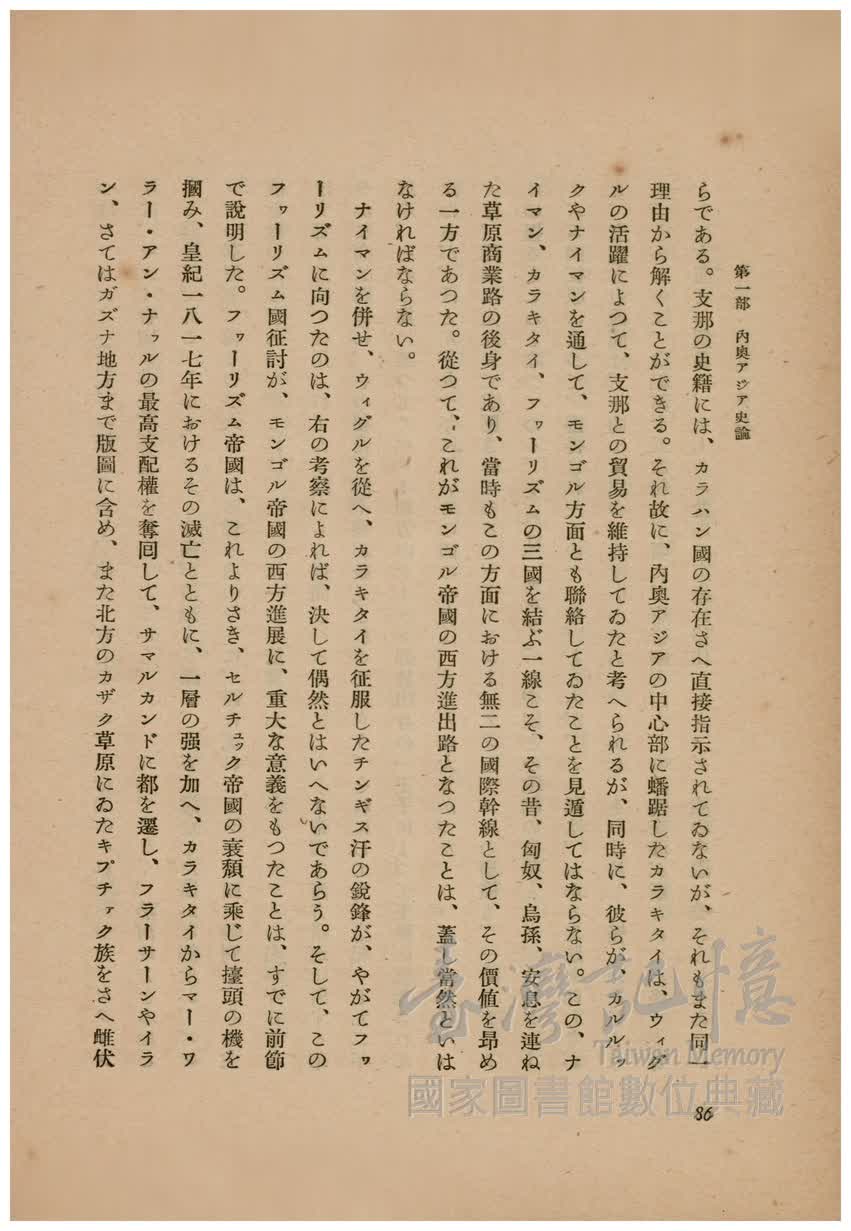 第一部　內奧アジア史論
らである。支那の史籍には、カラハン國の存在さへ直接指示されてゐないが、それもまた同一
理由から解くことができる。それ故に、內奧アジアの中心部に蟠踞したカラキタイは、ウィグ
ルの活躍によつて、支那との貿易を維持してゐたと考へられるが、同時に、彼らが、カルルッ
クやナイマンを通して、モンゴル方面とも聯絡してゐたことを見遁してはならない。この、ナ
イマン、カラキタイ、フヮーリズムの三國を結ぶ一線こそ、その昔、匈奴、烏孫、安息を連ね
た草原商業路の後身であり、當時もこの方面における無二の國際幹線として、その價値を昻め
る一方であつた。從つて、これがモンゴル帝國の西方進出路となつたことは、蓋し當然といは
なければならない。
ナイマンを併せ、ウィグルを從へ、カラキタイを征服したチンギス汗の銳鋒が、やがてフヮ
ーリズムに向つたのは、右の考察によれば、決して偶然とはいへないであらう。そして、この
フヮーリズム國征討が、モンゴル帝國の西方進展に、重大な意義をもつたことは、すでに前節
で說明した。フヮーリズム帝國は、これよりさき、セルチュック帝國の衰頽に乘じて擡頭の機を
摑み、皇紀一八一七年におけるその滅亡とともに、一層の强を加へ、カラキタイからマー・ワ
ラー・アン・ナヮルの最高支配權を奪囘して、サマルカンドに都を遷し、フラーサーンやイラ
ン、さてはガズナ地方まで版圖に含め、また北方のカザク草原にゐたキプチァク族をさへ雌伏
86
臺灣記憶
Taiwan Memory
國家圖書館數位典藏